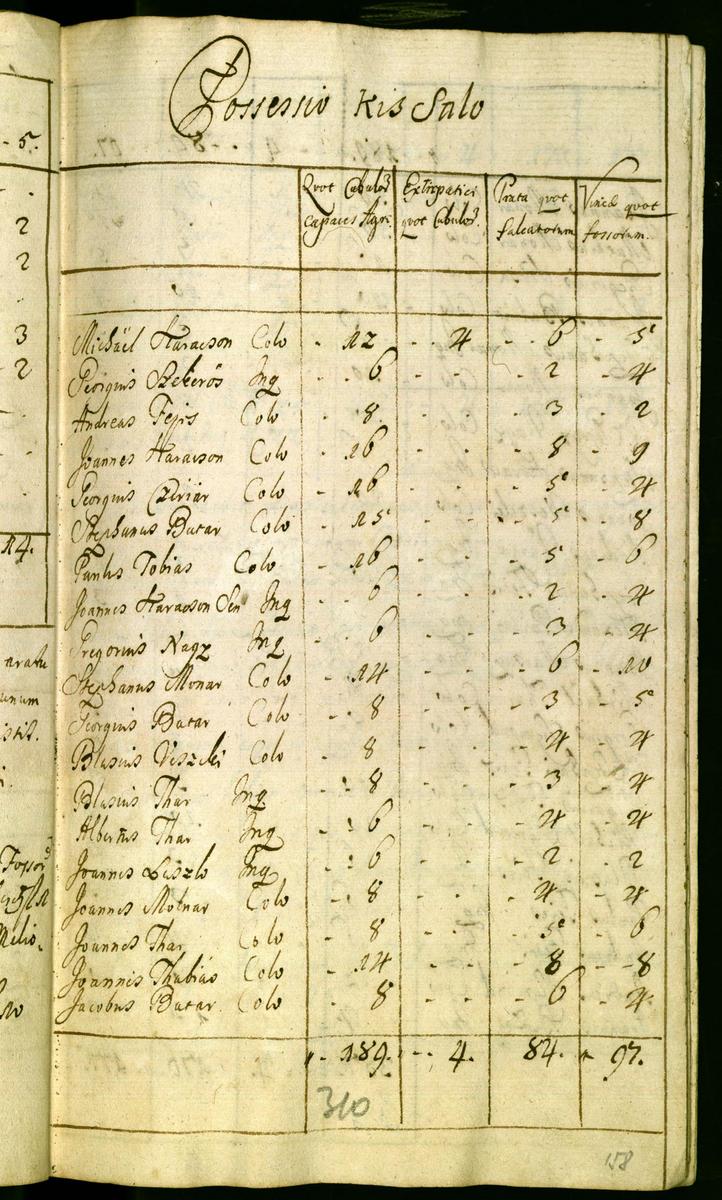 Possessio Kis Salo
Quot Cubulor. Extirpatici Prata quot Vineæ quot
capaces Agri. quot Cubulor. falcatorum fossorum.
Michaël Haracson Colo - 12 - - 4 - - 6 - 5
Georgius Szekerös Inq - - 6 - - - - 2 - 4
Andreas Fejis Colo - 8 - - - - 3 - 2
Joannes Haracson Colo - 16 - - - - 8 - 9
Georgius Colo - 16 - - - - 5 - 4
Stephanus Butar Colo - 15 - - - - 5 - 8
Paulus Tobias Colo - 16 - - - - 5 - 6
Joannes Haracson Sen Inq - - 6 - - - - 2 - 4
Gregorius Nagy Inq - - 6 - - - - 3 - 4
Stephanus Monar Colo - 14 - - - - 6 - 10
Georgius Butar Colo - - 8 - - - - 3 - 5
Blasius Colo - - 8 - - - - 4 - 4
Blasius Thar Inq - - 8 - - - - 3 - 4
Albertus Thar Inq - - 6 - - - - 4 - 4
Joannes László Inq - - 6 - - - - 2 - 2
Joannes Molnar Colo - - 8 - - - - 4 - 4
Joannes Thar Colo - - 8 - - - - 5 - 6
Joannis Thabias Colo - 14 - - - - 8 - - 8
Jacobus Butar Colo - - 8 - - - - 6 - 4
189. - - 4. 84. 97.
310
158
- 5.
2
2
3
2
14.
aratu
unum